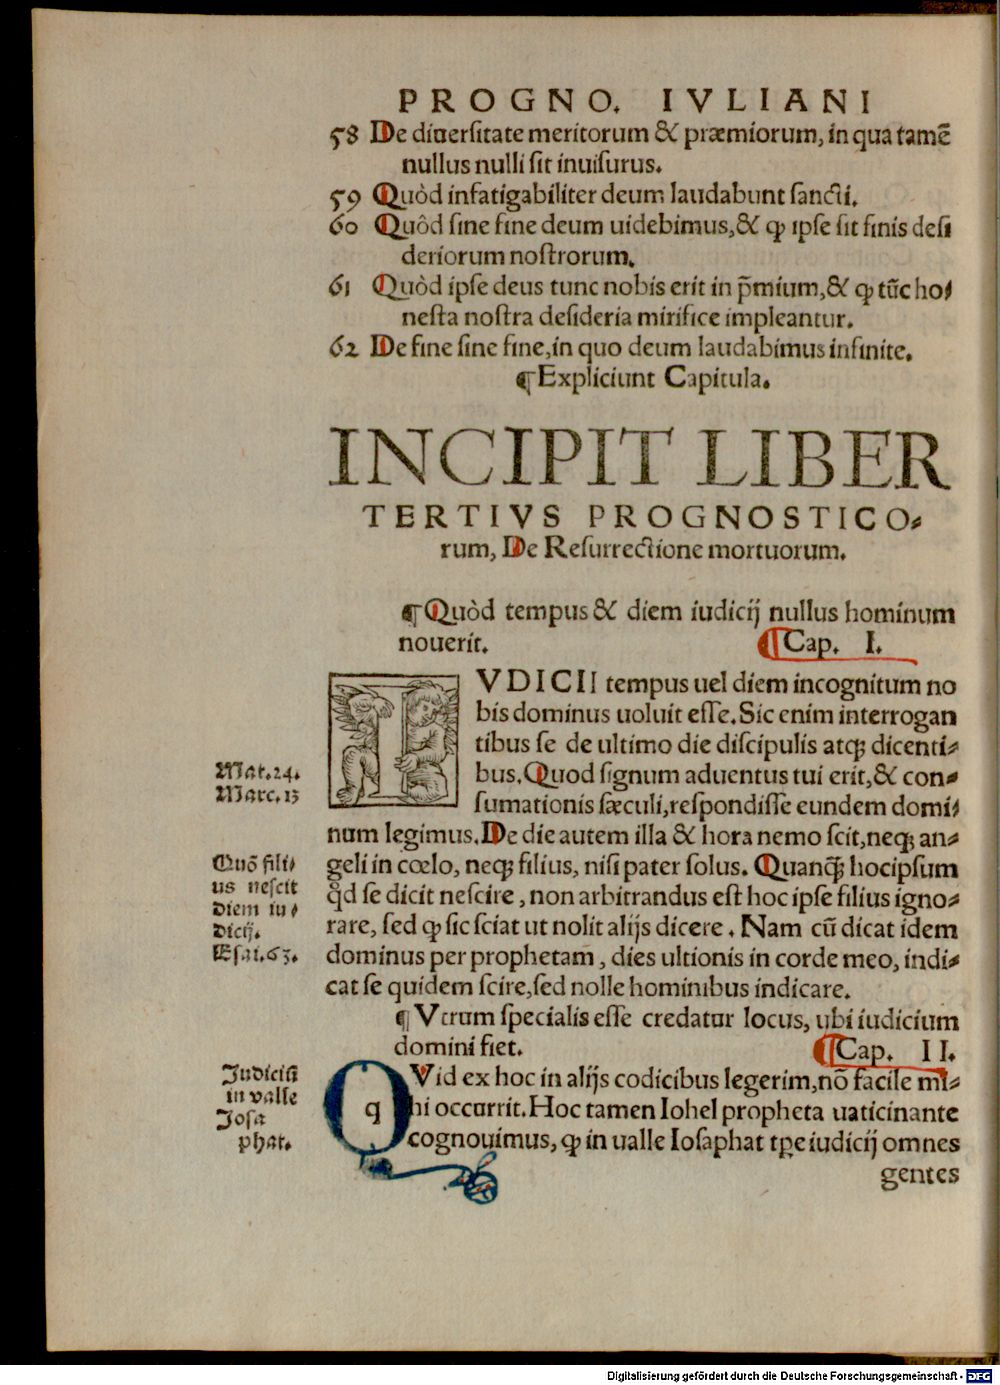 PROGNO. IVLIANI
58 De diuersitate meritorum & præmiorum, in qua tamē
nullus nulli sit inuisurus.
59 Quòd infatigabiliter deum laudabunt sancti.
60 Quôd sine fine deum uidebimus,& ꝙ ipse sit finis desi
deriorum nostrorum.
61 Quòd ipse deus tunc nobis erit in p̃mium,& ꝙ tūc ho⸗
nesta nostra desideria mirifice impleantur.
62 De fine sine fine,in quo deum laudabimus infinite.
¶Expliciunt Capitula.
INCIPIT LIBER
TERTIVS PROGNOSTICO⸗
rum, De Resurrectione mortuorum.
¶Quòd tempus & diem iudicij nullus hominum
nouerit. ¶Cap. I.
IVDICII tempus uel diem incognitum no
bis dominus uoluit esse.Sic enim interrogan
tibus se de ultimo die discipulis atqꝫ dicenti⸗
bus.Quod signum aduentus tui erit,& con⸗
sumationis sæculi,respondisse eundem domi⸗
num legimus.De die autem illa & hora nemo scit,neqꝫ an⸗
geli in cœlo, neqꝫ filius, nisi pater solus. Quanqꝫ̃ hocipsum
q̊d se dicit nescire, non arbitrandus est hoc ipse filius igno⸗
rare, sed ꝙ sic sciat ut nolit alijs dicere. Nam cū dicat idem
dominus per prophetam, dies ultionis in corde meo, indi⸗
cat se quidem scire,sed nolle hominibus indicare.
Mat.24.
Marc.13
Quō fili⸗
us nescit
diem iu⸗
dicij.
Esai.63.
¶Vtrum specialis esse credatur locus, ubi iudicium
domini fiet. ¶Cap. II.
QVid ex hoc in alijs codicibus legerim,nō facile mi⸗
hi occurrit.Hoc tamen Iohel propheta uaticinante
cognouimus, ꝙ in ualle Iosaphat tp̄e iudicij omnes
gentes
Judiciū
in valle
Josa
phat.
Digitalisierung gefördert durch die Deutsche Forschungsgemeinschaft - DFG